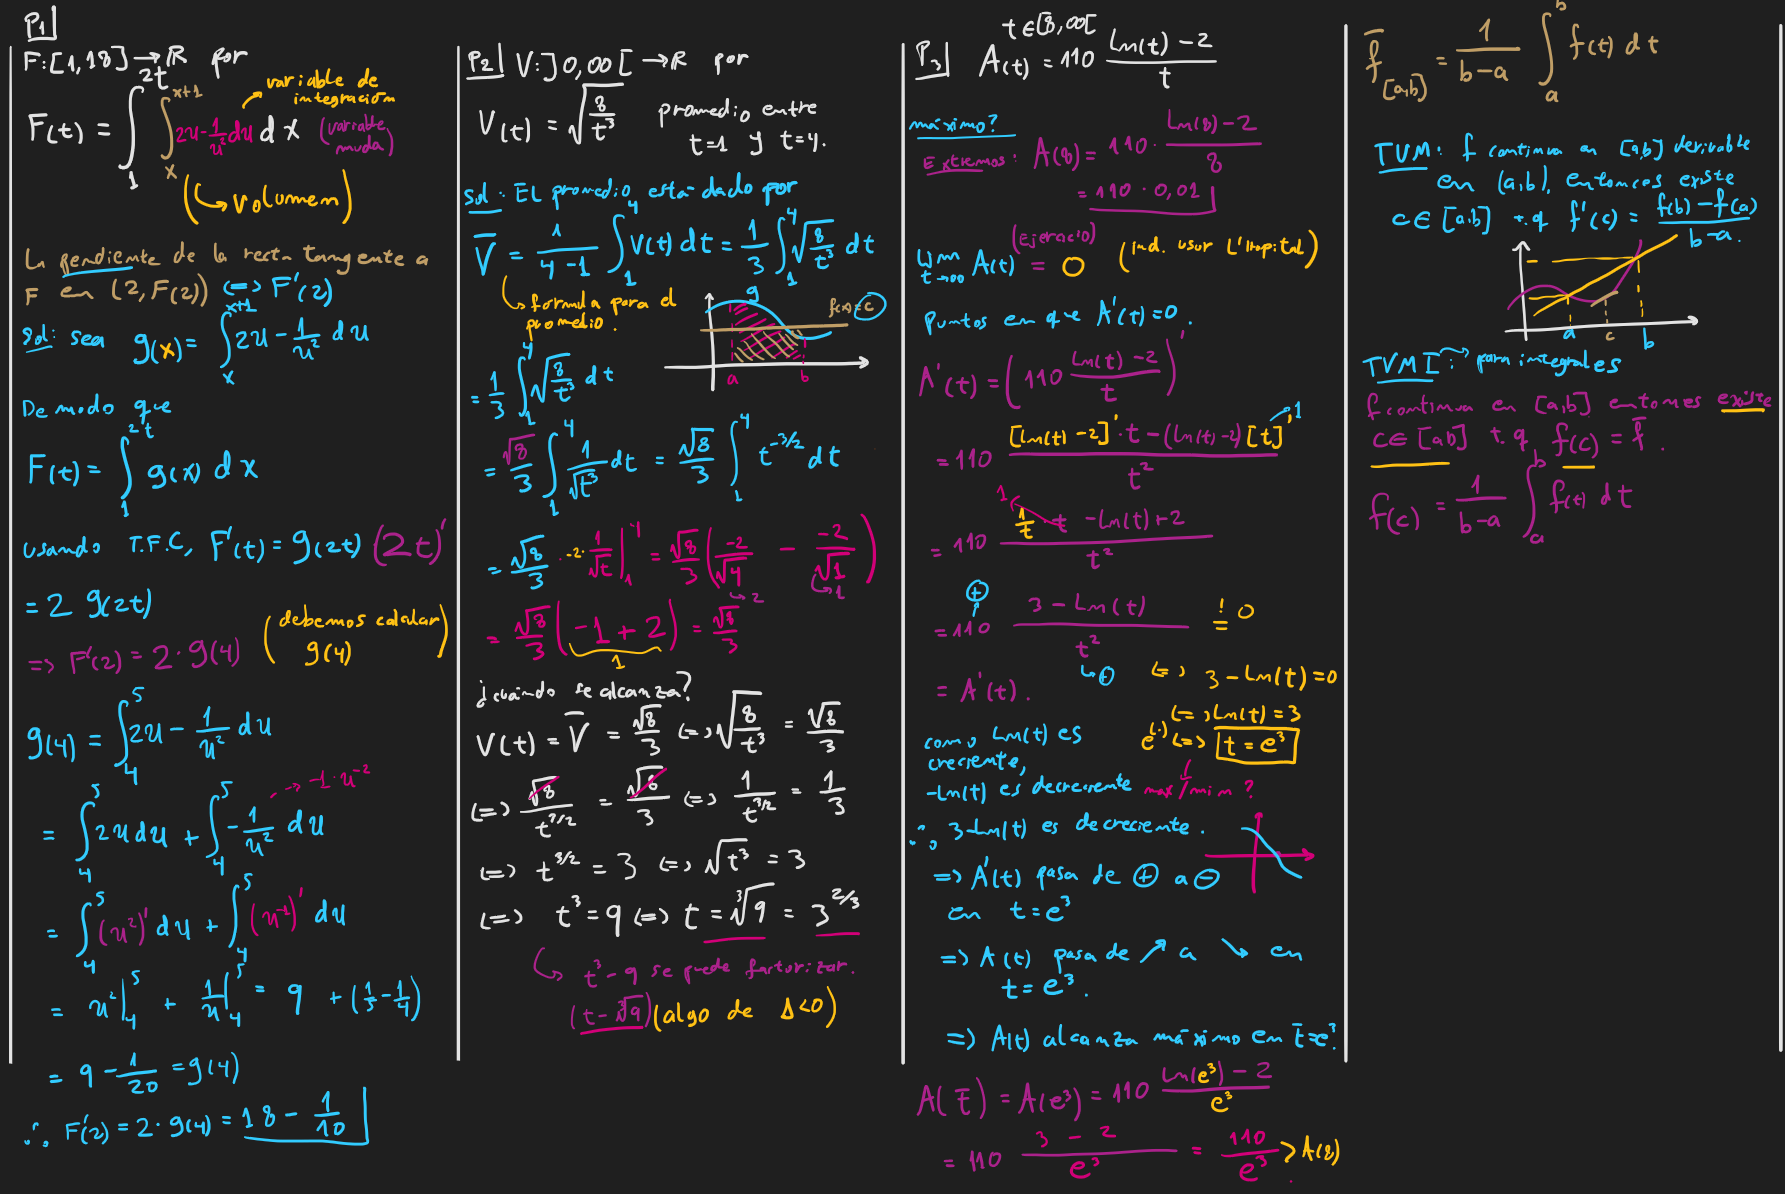 P1
F:[1,18] → R por
F(t) = ∫_1^{2t} ∫_x^{x+1} 2u - 1/u² du dx
variable de integración
(variable muda)
(↳ volumen)
La pendiente de la recta tangente a
F en (2, F(2)) <=> F'(2)
Sol: sea g(x) = ∫_x^{x+1} 2u - 1/u² du
De modo que
F(t) = ∫_1^{2t} g(x) dx
usando T.F.C, F'(t) = g(2t) (2t)'
= 2 g(2t)
=> F'(2) = 2·g(4) (debemos calcular g(4))
g(4) = ∫_4^5 2u - 1/u² du
= ∫_4^5 2u du + ∫_4^5 -1/u² du → -1·u^{-2}
= ∫_4^5 (u²)' du + ∫_4^5 (u^{-1})' du
= u²|_4^5 + 1/u|_4^5 = 9 + (1/5 - 1/4)
= 9 - 1/20 = g(4)
∴ F'(2) = 2·g(4) = 18 - 1/10
P2 V:]0,∞[ → R por
V(t) = √(8/t³) promedio entre
t=1 y t=4.
Sol: El promedio está dado por
V̄ = 1/(4-1) ∫_1^4 V(t) dt = 1/3 ∫_1^4 √(8/t³) dt
↳ formula para el
promedio.
g
f(x)=c
a b
= 1/3 ∫_1^4 √(8/t³) dt
= √8/3 ∫_1^4 1/√t³ dt = √8/3 ∫_1^4 t^{-3/2} dt
= √8/3 · -2· 1/√t |_1^4 = √8/3 (-2/√4 - -2/√1)
↳ 2 ↳ 1
= √8/3 (-1 + 2) = √8/3
1
¿cuándo se alcanza?
V(t) = V̄ = √8/3 <=> √(8/t³) = √8/3
<=> √8/t^{3/2} = √8/3 <=> 1/t^{3/2} = 1/3
<=> t^{3/2} = 3 <=> √t³ = 3
<=> t³ = 9 <=> t = ∛9 = 3^{2/3}
↳ t³-9 se puede factorizar.
(t-∛9)(algo de Δ<0)
t∈[8,∞[
P3 A(t) = 110 (Ln(t) - 2)/t
máximo?
Extremos: A(8) = 110 · (Ln(8) - 2)/8
= 110 · 0,01
(Ejercicio)
Lim_{t→∞} A(t) = 0 (Ind. usar L'Hopital)
Puntos en que A'(t)=0.
A'(t) = (110 (Ln(t) - 2)/t)'
= 110 ([Ln(t) - 2]'·t - (Ln(t)-2)[t]')/t² → 1
= 110 (1/t · t - Ln(t) + 2)/t² 1
⊕
= 110 (3 - Ln(t))/t² =! 0
↳ ⊕ <=> 3 - Ln(t) = 0
= A'(t).
<=> Ln(t) = 3
e^(·) <=> t = e³
como Ln(t) es
creciente,
-Ln(t) es decreciente max/min?
∴ 3-Ln(t) es decreciente.
=> A'(t) pasa de ⊕ a ⊖
en t = e³
=> A(t) pasa de ↗ a ↘ en
t = e³.
=> A(t) alcanza máximo en t̄=e³.
A(t̄) = A(e³) = 110 (Ln(e³) - 2)/e³
= 110 (3 - 2)/e³ = 110/e³ > A(8)
f̄_[a,b] = 1/(b-a) ∫_a^b f(t) dt
TVM: f continua en [a,b] derivable
en (a,b), entonces existe
c∈[a,b] t.q f'(c) = (f(b) - f(a))/(b-a).
a c b
TVMI: → para integrales
f continua en [a,b] entonces existe
c∈[a,b] t.q f(c) = f̄.
f(c) = 1/(b-a) ∫_a^b f(t) dt